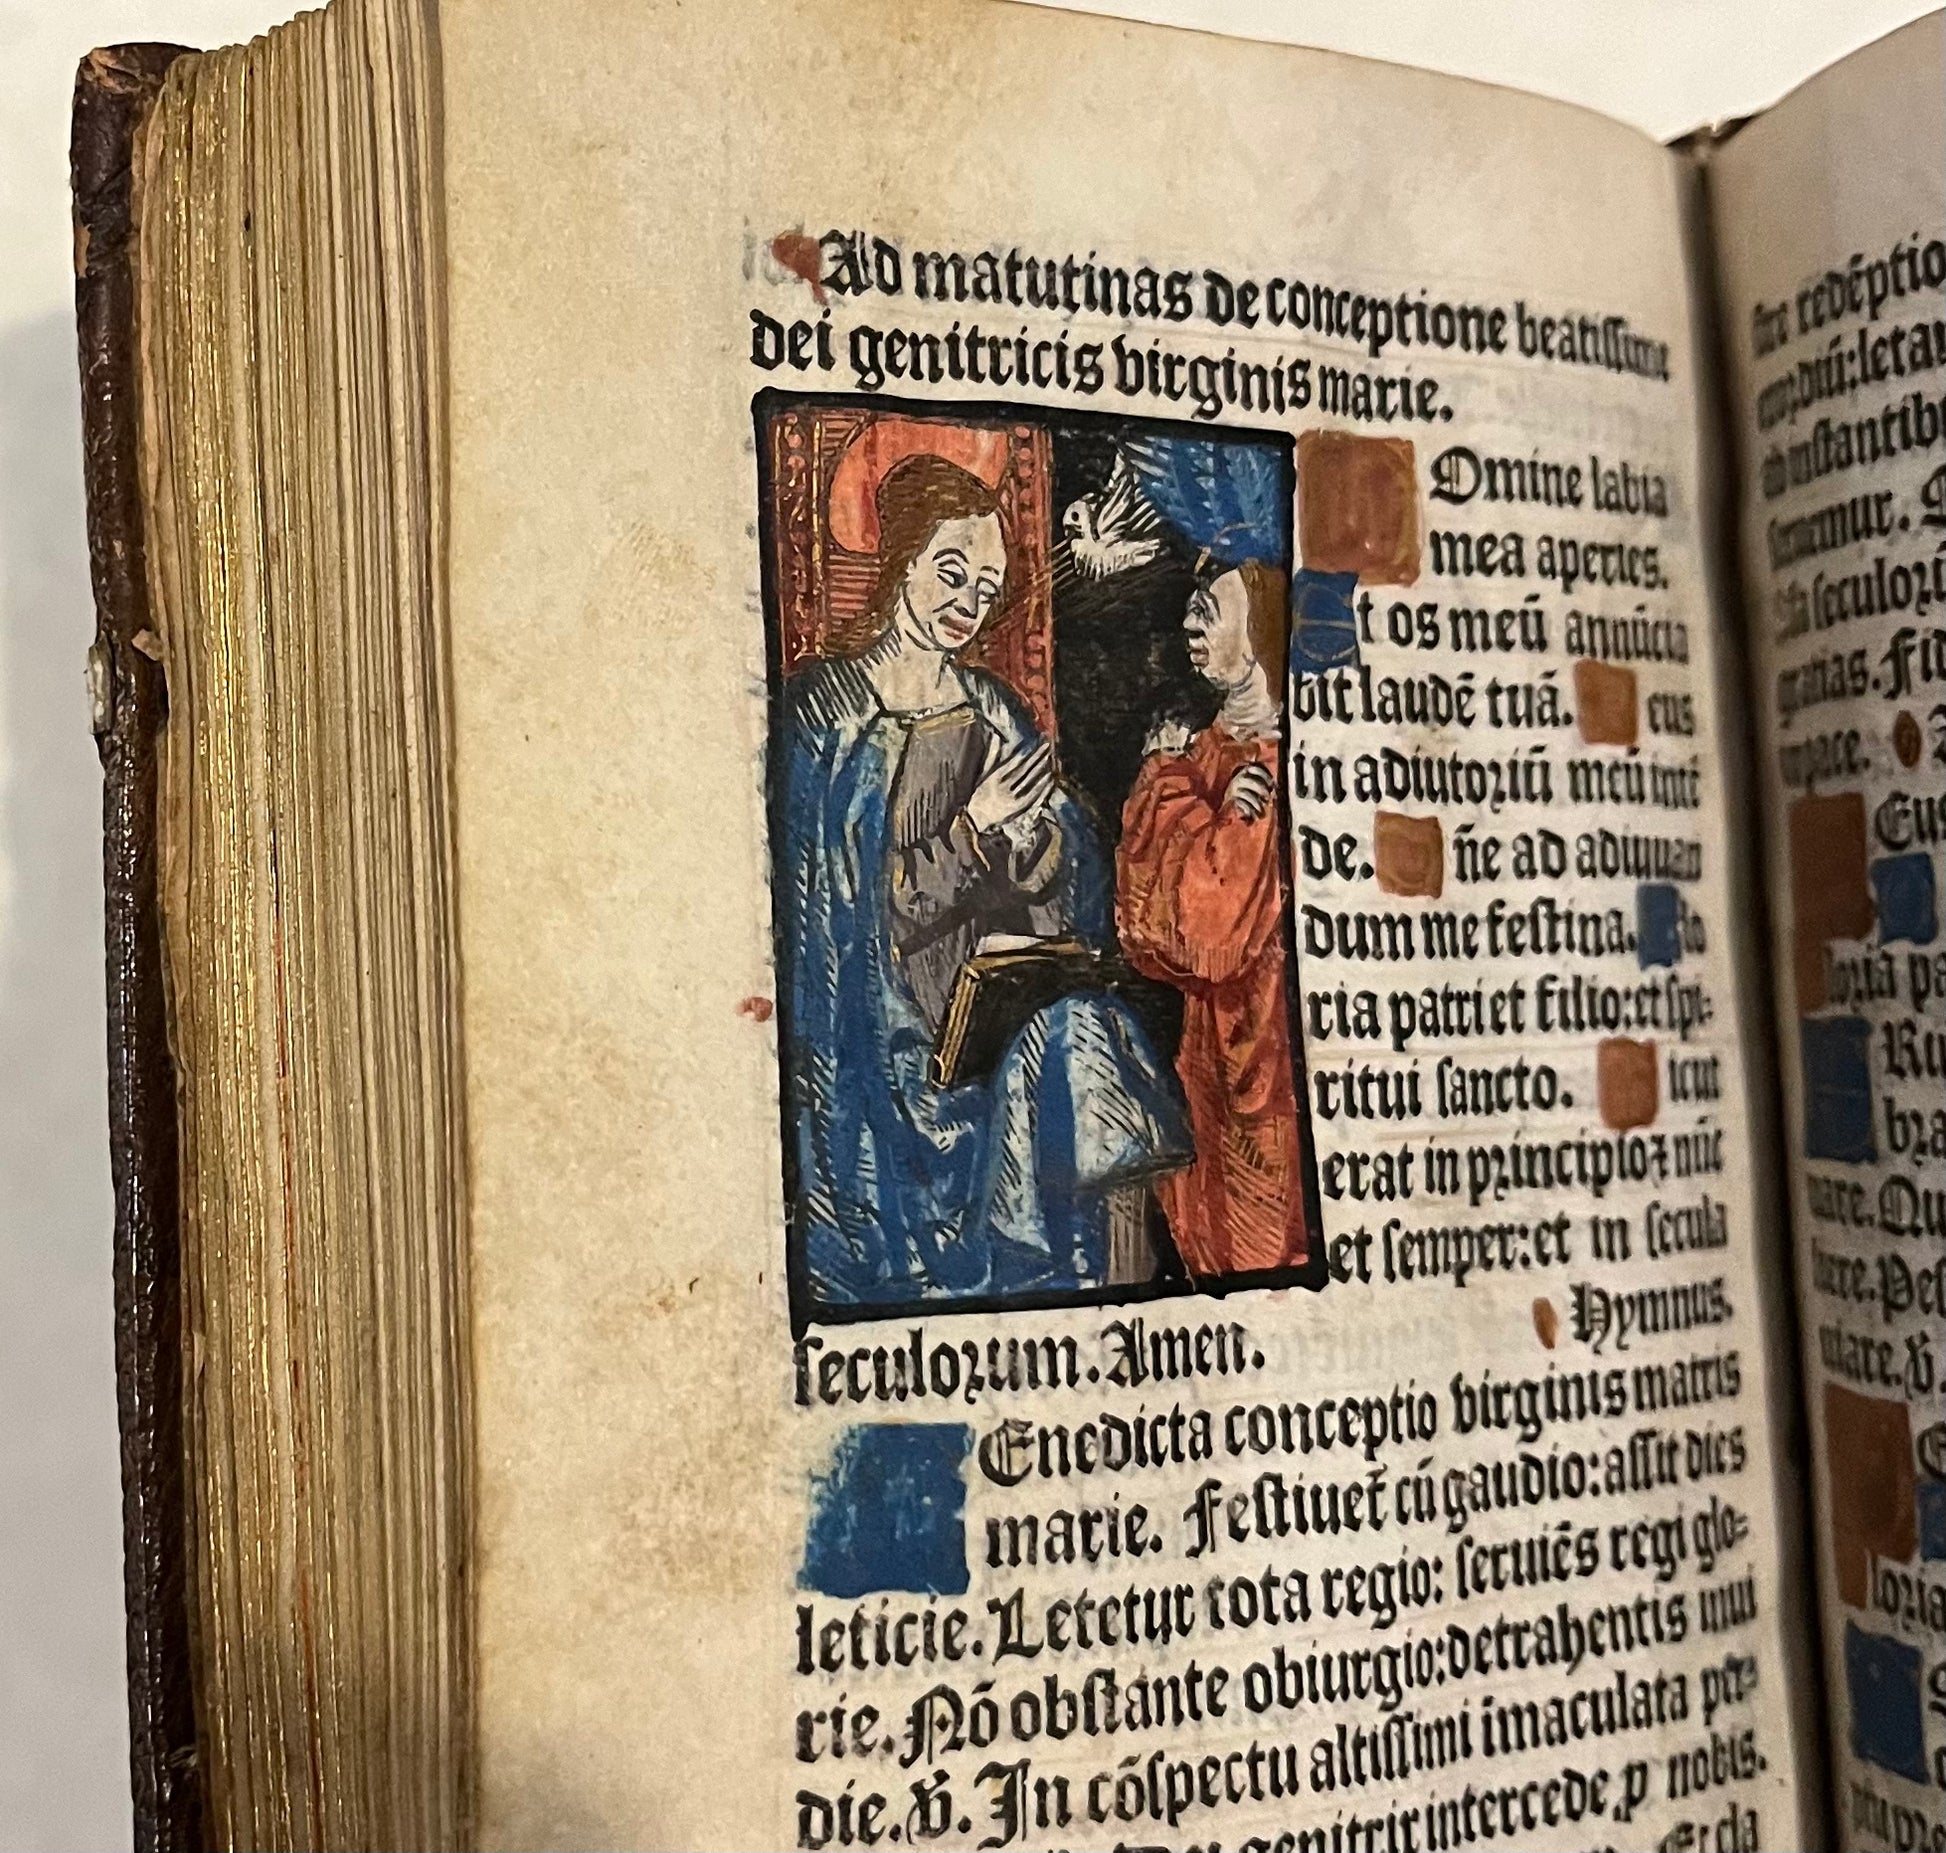 Ad matutinas de conceptione beatissime
dei genitricis virginis marie.
Omine labia
mea aperies.
t os meū annūcia
bit laudē tuā. eus
in adiutoriū meū intē
de. ñe ad adiuuan
dum me festina. lo
ria patri et filio: et spi-
ritui sancto. icut
erat in principio ⁊ nūc
et semper: et in secula
seculorum. Amen. Hymnus.
Enedicta conceptio virginis matris
marie. Festiuet cū gaudio: assit dies
leticie. Letetur tota regio: seruiēs regi glo-
rie. Nō obstante obiurgio: detrahentis
die. V. In cōspectu altissimi īmaculata
genitrix intercede p nobis.
re redēptio
letan
instantibꝰ
seculorū
gratias. Fid
pace.
Eus
loria pa
bra